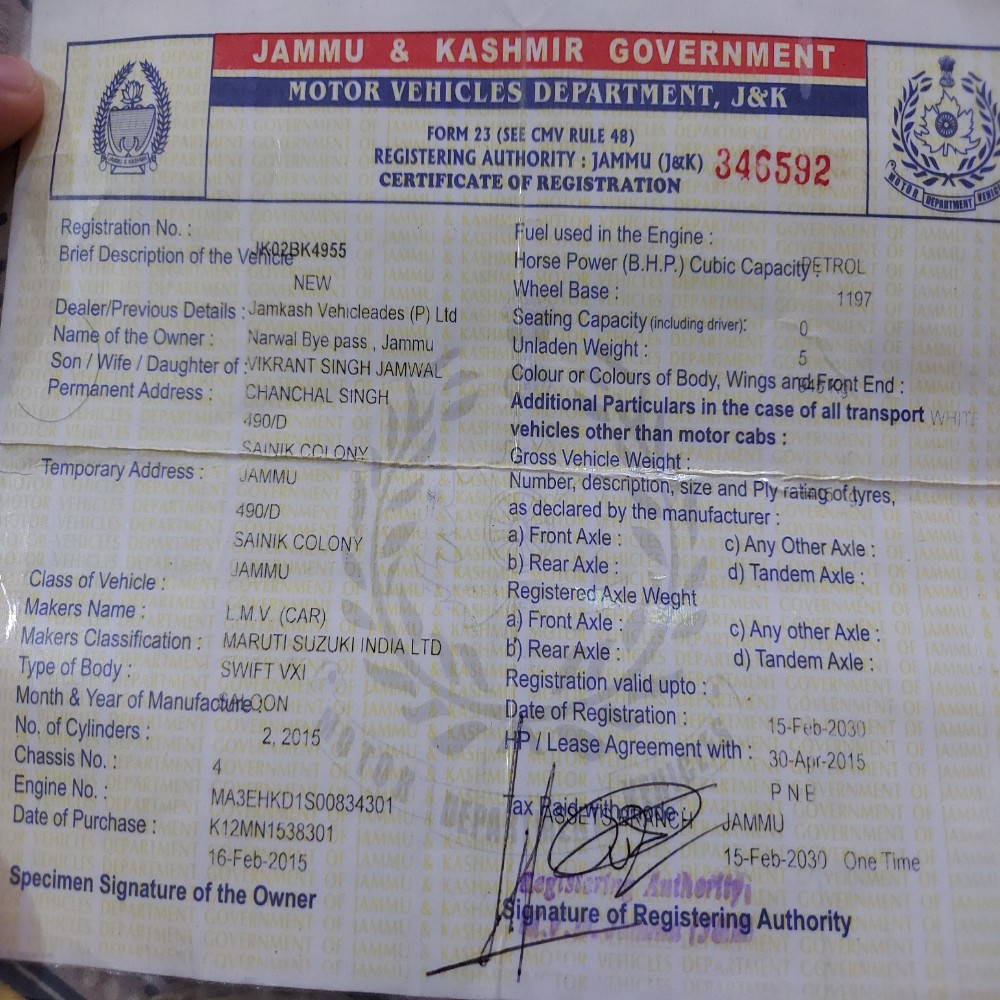 JAMMU & KASHMIR GOVERNMENT
MOTOR VEHICLES DEPARTMENT, J&K
FORM 23 (SEE CMV RULE 48)
REGISTERING AUTHORITY : JAMMU (J&K) 346592
CERTIFICATE OF REGISTRATION
MOTOR DEPARTMENT
Registration No. :
Brief Description of the Vehicle JK02BK4955
NEW
Dealer/Previous Details : Jamkash Vehicleades (P) Ltd
Name of the Owner : Narwal Bye pass , Jammu
Son / Wife / Daughter of : VIKRANT SINGH JAMWAL
Permanent Address : CHANCHAL SINGH
490/D
SAINIK COLONY
Temporary Address : JAMMU
490/D
SAINIK COLONY
JAMMU
Class of Vehicle :
Makers Name : L.M.V. (CAR)
Makers Classification : MARUTI SUZUKI INDIA LTD
Type of Body : SWIFT VXI
Month & Year of Manufacture : SALOON
No. of Cylinders : 2, 2015
Chassis No. : 4
Engine No. : MA3EHKD1S00834301
Date of Purchase : K12MN1538301
16-Feb-2015
Specimen Signature of the Owner
Fuel used in the Engine :
Horse Power (B.H.P.) Cubic Capacity PETROL
Wheel Base : 1197
Seating Capacity (including driver): 0
Unladen Weight : 5
Colour or Colours of Body, Wings and Front End :
Additional Particulars in the case of all transport WHITE
vehicles other than motor cabs :
Gross Vehicle Weight :
Number, description, size and Ply rating of tyres,
as declared by the manufacturer :
a) Front Axle : c) Any Other Axle :
b) Rear Axle : d) Tandem Axle :
Registered Axle Weght
a) Front Axle : c) Any other Axle :
b) Rear Axle : d) Tandem Axle :
Registration valid upto :
Date of Registration : 15-Feb-2030
HP / Lease Agreement with : 30-Apr-2015
P N B
Tax Paid BRANCH JAMMU
15-Feb-2030 One Time
Registering Authority
Signature of Registering Authority